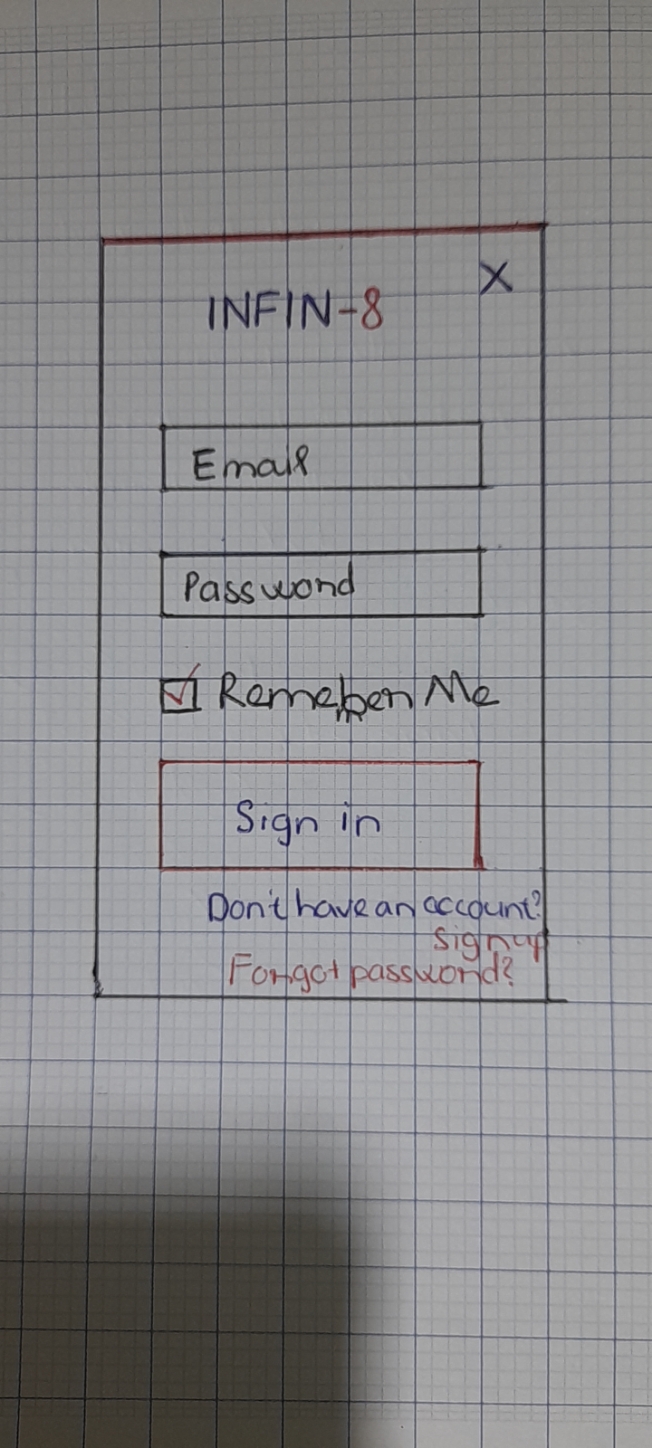 X
INFIN-8
Email
Password
Remeber Me
Sign in
Don't have an account?
Signup
Forgot password?